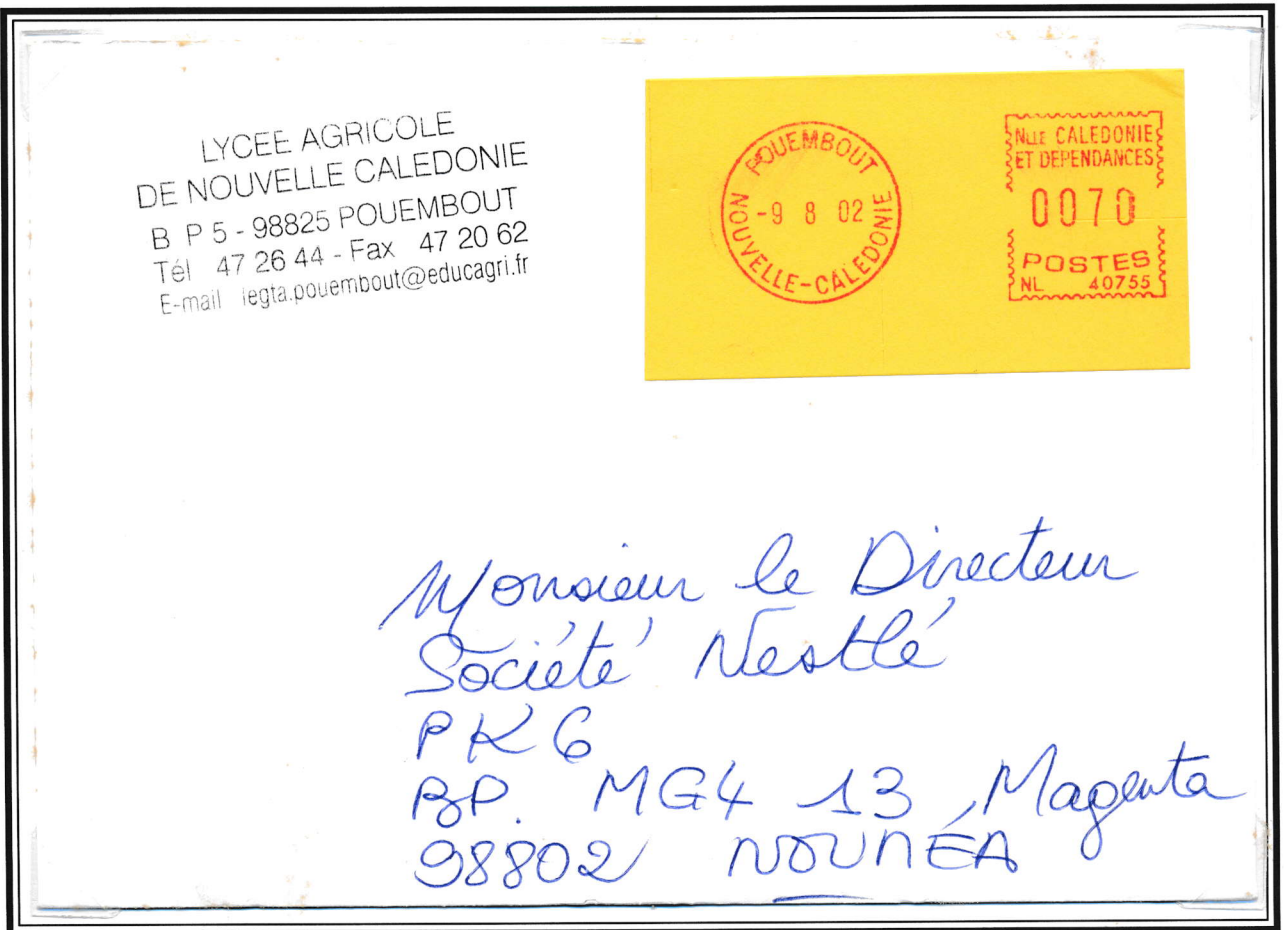 LYCEE AGRICOLE
DE NOUVELLE CALEDONIE
B P 5 - 98825 POUEMBOUT
Tél 47 26 44 - Fax 47 20 62
E-mail legta.pouembout@educagri.fr
POUEMBOUT
-9 8 02
NOUVELLE-CALEDONIE
NLLE CALEDONIE
ET DEPENDANCES
0070
POSTES
NL 40755
Monsieur le Directeur
Société Nestlé
PK 6
BP. MG4 13 Magenta
98802 NOUMÉA